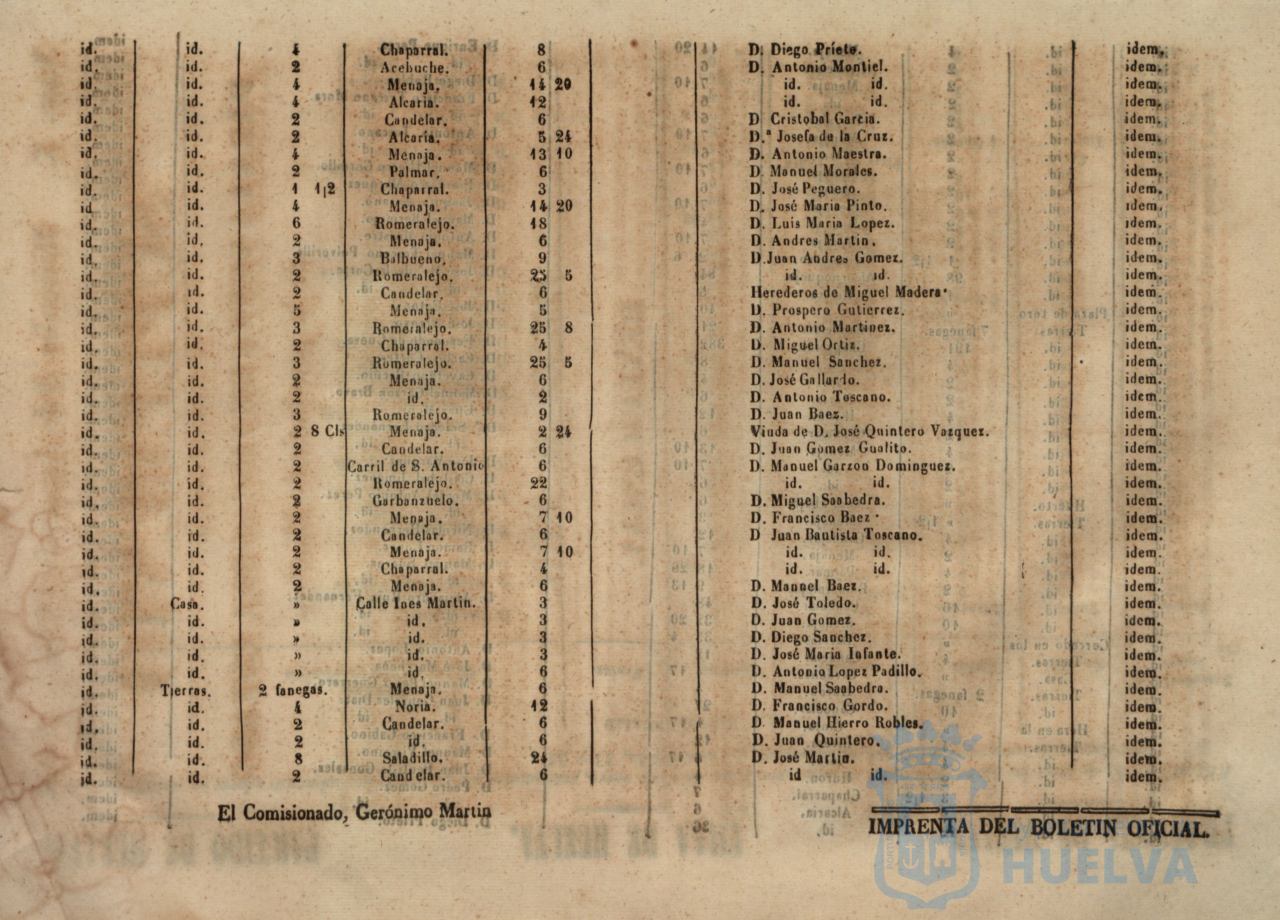 id. id. 4 Chaparral. 8 D. Diego Prieto. idem.
id. id. 2 Acebuche. 6 D. Antonio Montiel. idem.
id. id. 4 Menaja. 14 20 id. id. idem.
id. id. 4 Alcaria. 12 id. id. idem.
id. id. 2 Candelar. 6 D Cristobal Garcia. idem.
id. id. 2 Alcaria. 5 24 D.ª Josefa de la Cruz. idem.
id. id. 4 Menaja. 13 10 D. Antonio Maestra. idem.
id. id. 2 Palmar. 6 D. Manuel Morales. idem.
id. id. 1 1|2 Chaparral. 3 D. José Peguero. idem.
id. id 4 Menaja. 14 20 D. José Maria Pinto. idem.
id. id. 6 Romeralejo. 18 D. Luis Maria Lopez. idem.
id. id. 2 Menaja. 6 D. Andres Martin. idem.
id. id. 3 Balbueno. 9 D. Juan Andres Gomez. idem.
id. id. 2 Romeralejo. 25 5 id. id. idem.
id. id. 2 Candelar. 6 Herederos de Miguel Madera. idem.
id. id. 5 Menaja. 5 D. Prospero Gutierrez. idem.
id. id. 3 Romeralejo. 25 8 D. Antonio Martinez. idem.
id. id. 2 Chaparral. 4 D. Miguel Ortiz. idem.
id. id. 3 Romeralejo. 25 5 D. Manuel Sanchez. idem.
id. id. 2 Menaja. 6 D. José Gallardo. idem.
id. id. 2 id. 2 D. Antonio Toscano. idem.
id. id. 3 Romeralejo. 9 D. Juan Baez. idem.
id. id. 2 8 Cls Menaja. 2 24 Viuda de D. José Quintero Vazquez. idem.
id. id. 2 Candelar. 6 D. Juan Gomez Gualito. idem.
id. id. 2 Carril de S. Antonio 6 D. Manuel Garzon Dominguez. idem.
id. id. 2 Romeralejo. 22 id. id. idem.
id. id. 2 Garbanzuelo. 6 D. Miguel Saabedra. idem.
id. id. 2 Menaja. 7 10 D. Francisco Baez. idem.
id. id. 2 Candelar. 6 D Juan Bautista Toscano. idem.
id. id. 2 Menaja. 7 10 id. id. idem.
id. id. 2 Chaparral. 4 id. id. idem.
id. id. 2 Menaja. 6 D. Manuel Baez. idem.
id. Casa. » Calle Ines Martin. 3 D. José Toledo. idem.
id. id. » id. 3 D. Juan Gomez. idem.
id. id. » id. 3 D. Diego Sanchez. idem.
id. id. » id. 3 D. José Maria Infante. idem.
id. id. » id. 6 D. Antonio Lopez Padillo. idem.
id. Tierras. 2 fanegas. Menaja. 6 D. Manuel Saabedra. idem.
id. id. 4 Noria. 12 D. Francisco Gordo. idem.
id. id. 2 Candelar. 6 D. Manuel Hierro Robles. idem.
id. id. 2 id. 6 D. Juan Quintero. idem.
id. id. 8 Saladillo. 24 D. José Martin. idem.
id. id. 2 Candelar. 6 id id. idem.
El Comisionado, Gerónimo Martin
IMPRENTA DEL BOLETIN OFICIAL.
HUELVA